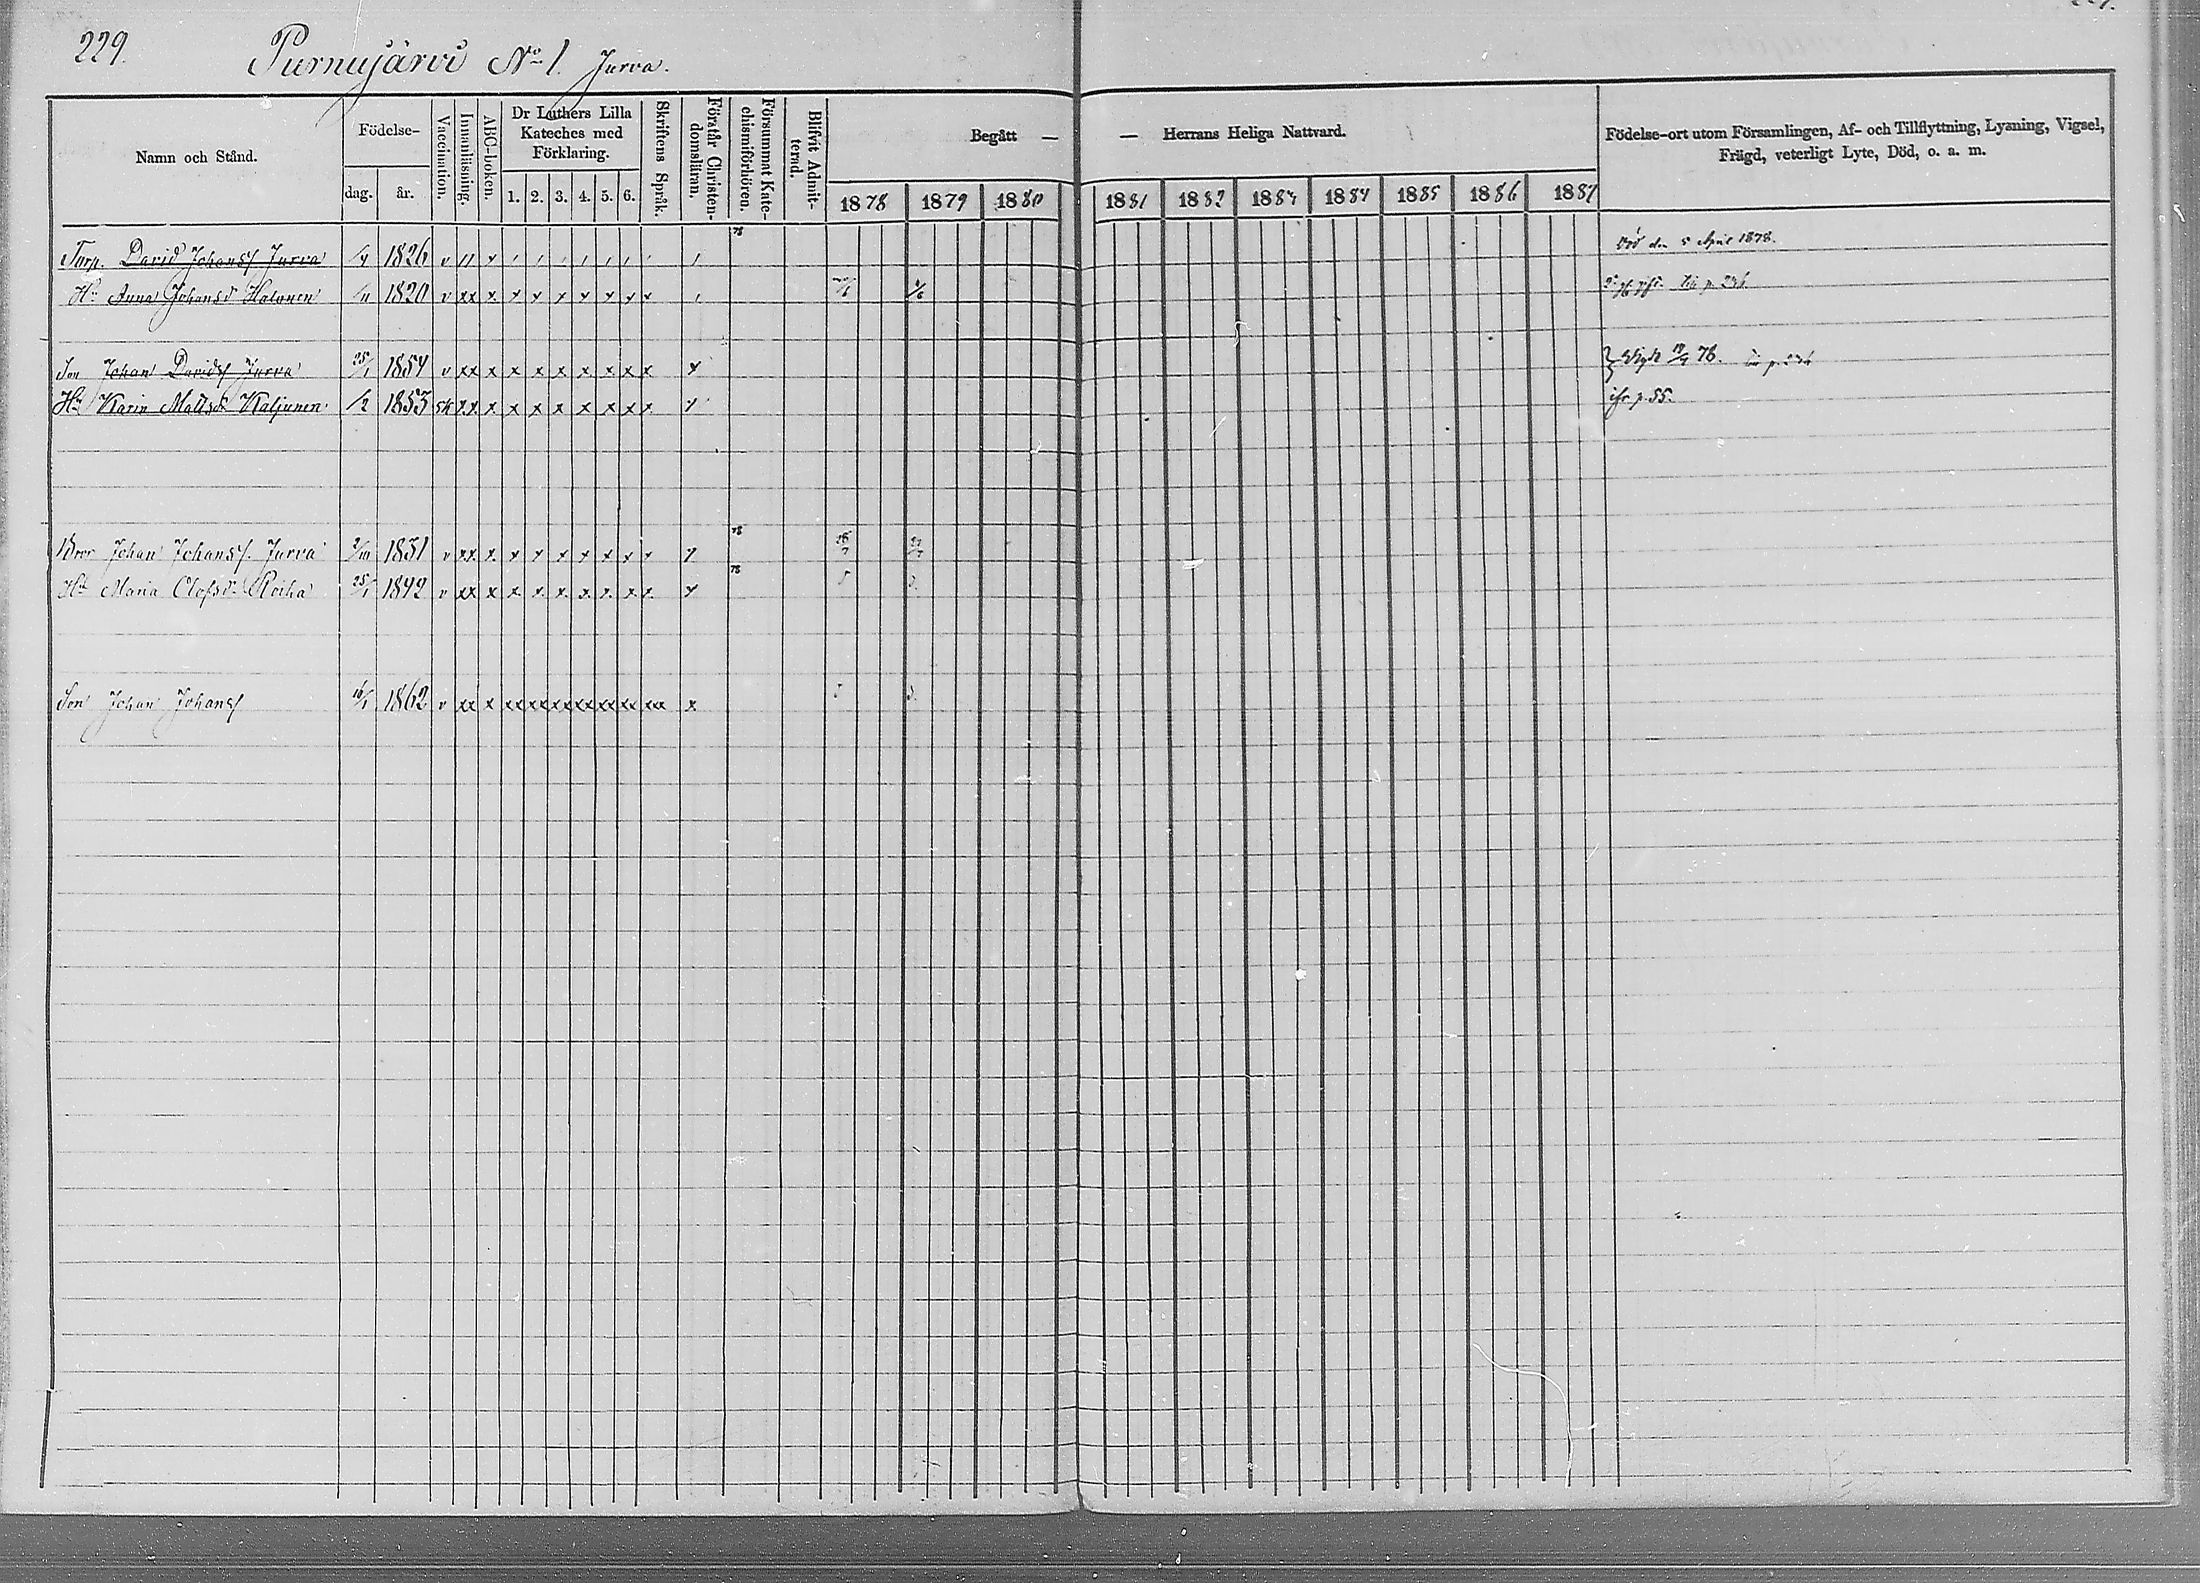 229.
Purnujärvi No 1. Jurva.
Namn och Stånd.
Födelse-
dag. år.
Vaccination.
Innanläsning.
ABC-boken.
Dr Luthers Lilla
Kateches med
Förklaring.
1. 2. 3. 4. 5. 6.
Skriftens Språk.
Förstår Christen-
domsläran.
Försummat Kate-
chismiförhören.
Blifvit Admit-
terad.
Begått — — Herrans Heliga Nattvard.
1878 1879 1880 1881 1882 1883 1884 1885 1886 1887
Födelse-ort utom Församlingen, Af- och Tillflyttning, Lysning, Vigsel,
Frägd, veterligt Lyte, Död, o. a. m.
Torp. David Johansf Jurva 1826 v 78 Död den 5 April 1878.
Hu Anna Johansd Halonen 1820 v xx x x x x x x x x
Son Johan Davidsf Jurva 25/1 1854 v xx x x x x x x x x x Vigde 76.
Hu Karin Mattsdr Kaljunen 1853 xx x x x x x x x x x p. 55.
Bror Johan Johansf. Jurva 1831 v xx x x x x x x x x x 78
Hu Maria Olofsdr Roiha 25/1 1842 v xx x x x x x x x x x 78
Son Johan Johansf 16/1 1862 v xx x xx xx xx xx xx xx xx x